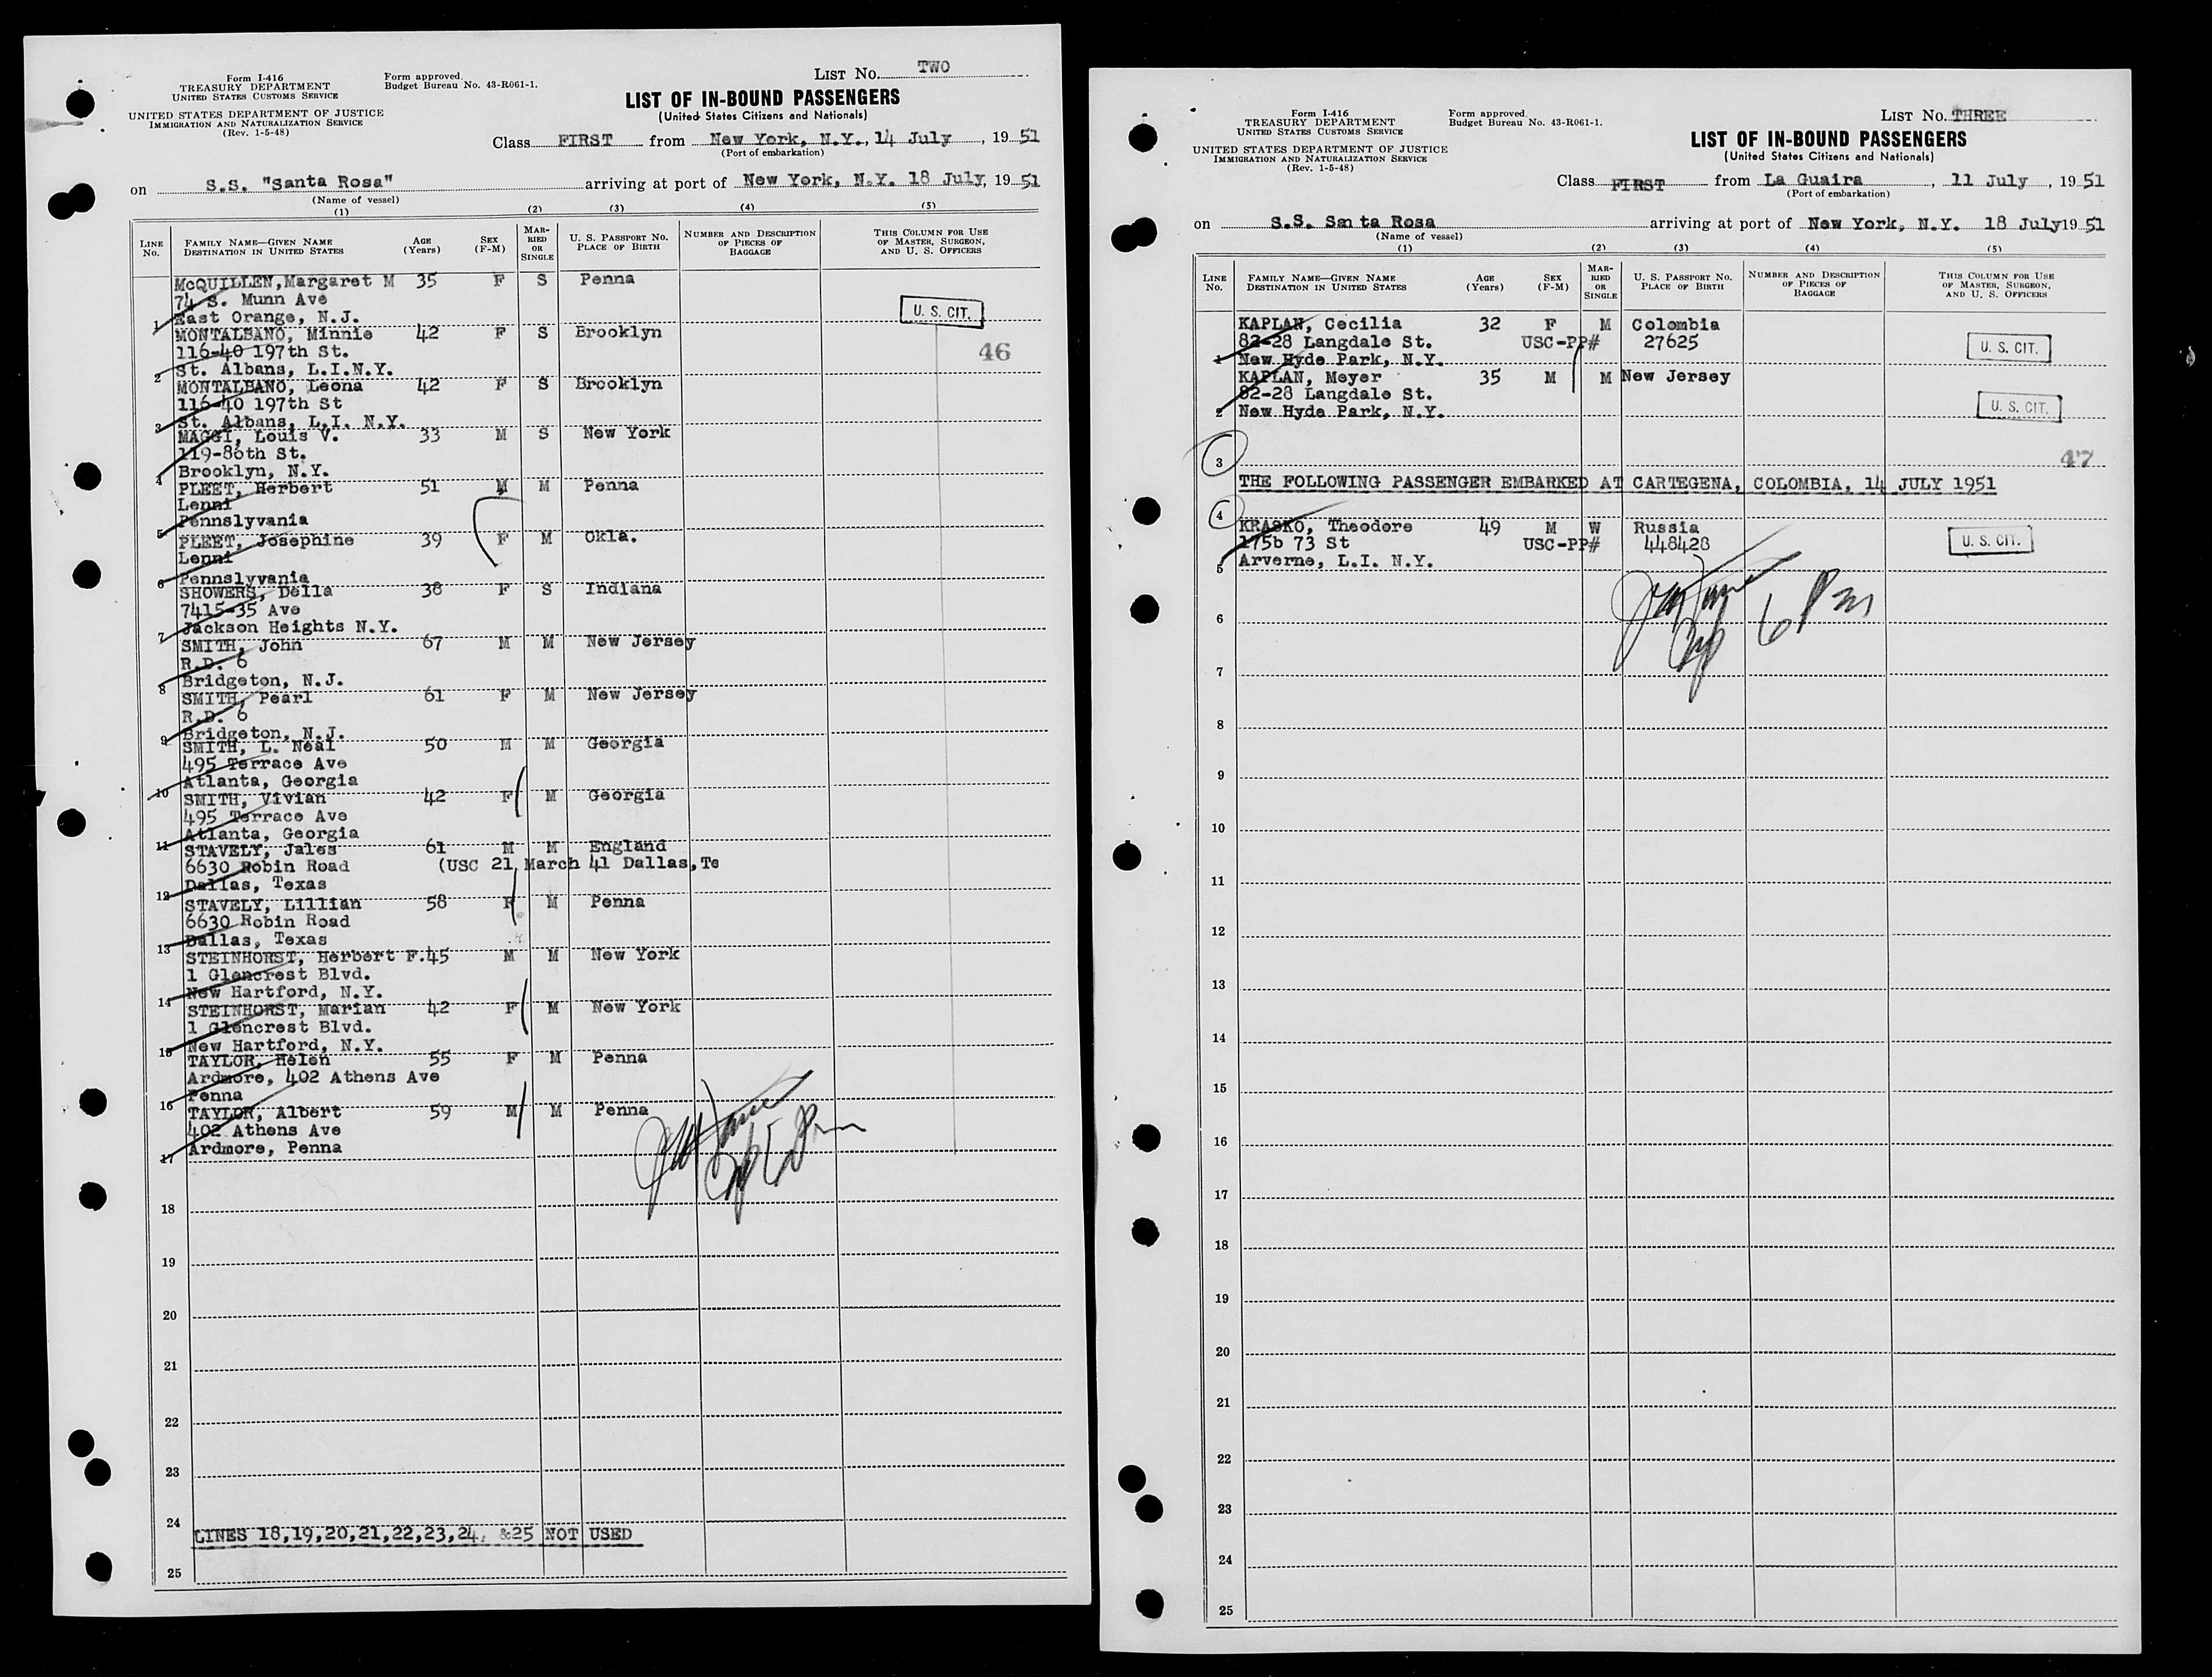 Form I-416
TREASURY DEPARTMENT
UNITED STATES CUSTOMS SERVICE
UNITED STATES DEPARTMENT OF JUSTICE
IMMIGRATION AND NATURALIZATION SERVICE
(Rev. 1-5-48)
Form approved.
Budget Bureau No. 43-R061-1.
LIST NO. TWO
LIST OF IN-BOUND PASSENGERS
(United States Citizens and Nationals)
Class FIRST from New York, N.Y., 14 July, 19 51
(Port of embarkation)
on S.S. "Santa Rosa" arriving at port of New York, N.Y. 18 July, 19 51
(Name of vessel)
(1) (2) (3) (4) (5)
LINE No. FAMILY NAME—GIVEN NAME DESTINATION IN UNITED STATES AGE (Years) SEX (F-M) MARRIED OR SINGLE U. S. PASSPORT NO. PLACE OF BIRTH NUMBER AND DESCRIPTION OF PIECES OF BAGGAGE THIS COLUMN FOR USE OF MASTER, SURGEON, AND U. S. OFFICERS
McQUILLEN, Margaret M 35 F S Penna
74 S. Munn Ave
1 East Orange, N.J. U. S. CIT.
MONTALBANO, Minnie 42 F S Brooklyn
116-40 197th St. 46
2 St. Albans, L.I.N.Y.
MONTALBANO, Leona 42 F S Brooklyn
116-40 197th St
3 St. Albans, L.I. N.Y.
MAGGI, Louis V. 33 M S New York
119-86th St.
4 Brooklyn, N.Y.
PLEET, Herbert 51 M M Penna
Lenni
5 Pennslyvania
PLEET, Josephine 39 F M Okla.
Lenni
6 Pennslyvania
SHOWERS, Della 38 F S Indiana
7415-35 Ave
7 Jackson Heights N.Y.
SMITH, John 67 M M New Jersey
R.D. 6
8 Bridgeton, N.J.
SMITH, Pearl 61 F M New Jersey
R.D. 6
9 Bridgeton, N.J.
SMITH, L. Neal 50 M M Georgia
495 Terrace Ave
10 Atlanta, Georgia
SMITH, Vivian 42 F M Georgia
495 Terrace Ave
11 Atlanta, Georgia
STAVELY, Jales 61 M M England
6630 Robin Road (USC 21 March 41 Dallas, Te
12 Dallas, Texas
STAVELY, Lillian 58 F M Penna
6630 Robin Road
13 Dallas, Texas
STEINHORST, Herbert F. 45 M M New York
1 Glencrest Blvd.
14 New Hartford, N.Y.
STEINHORST, Marian 42 F M New York
1 Glencrest Blvd.
15 New Hartford, N.Y.
TAYLOR, Helen 55 F M Penna
Ardmore, 402 Athens Ave
16 Penna
TAYLOR, Albert 59 M M Penna
402 Athens Ave
17 Ardmore, Penna
18
19
20
21
22
23
24
LINES 18,19,20,21,22,23,24, &25 NOT USED
25
Form I-416
TREASURY DEPARTMENT
UNITED STATES CUSTOMS SERVICE
UNITED STATES DEPARTMENT OF JUSTICE
IMMIGRATION AND NATURALIZATION SERVICE
(Rev. 1-5-48)
Form approved.
Budget Bureau No. 43-R061-1.
LIST NO. THREE
LIST OF IN-BOUND PASSENGERS
(United States Citizens and Nationals)
Class FIRST from La Guaira, 11 July, 19 51
(Port of embarkation)
on S.S. Santa Rosa arriving at port of New York, N.Y. 18 July 19 51
(Name of vessel)
(1) (2) (3) (4) (5)
LINE No. FAMILY NAME—GIVEN NAME DESTINATION IN UNITED STATES AGE (Years) SEX (F-M) MARRIED OR SINGLE U. S. PASSPORT NO. PLACE OF BIRTH NUMBER AND DESCRIPTION OF PIECES OF BAGGAGE THIS COLUMN FOR USE OF MASTER, SURGEON, AND U. S. OFFICERS
KAPLAN, Cecilia 32 F M Colombia
82-28 Langdale St. USC-PP# 27625 U. S. CIT.
1 New Hyde Park, N.Y.
KAPLAN, Meyer 35 M M New Jersey
82-28 Langdale St.
2 New Hyde Park, N.Y. U. S. CIT.
3 47
THE FOLLOWING PASSENGER EMBARKED AT CARTEGENA, COLOMBIA, 14 JULY 1951
4
KRASKO, Theodore 49 M W Russia
175b 73 St USC-PP# 448428 U. S. CIT.
5 Arverne, L.I. N.Y.
6 6 Pm
7
8
9
10
11
12
13
14
15
16
17
18
19
20
21
22
23
24
25